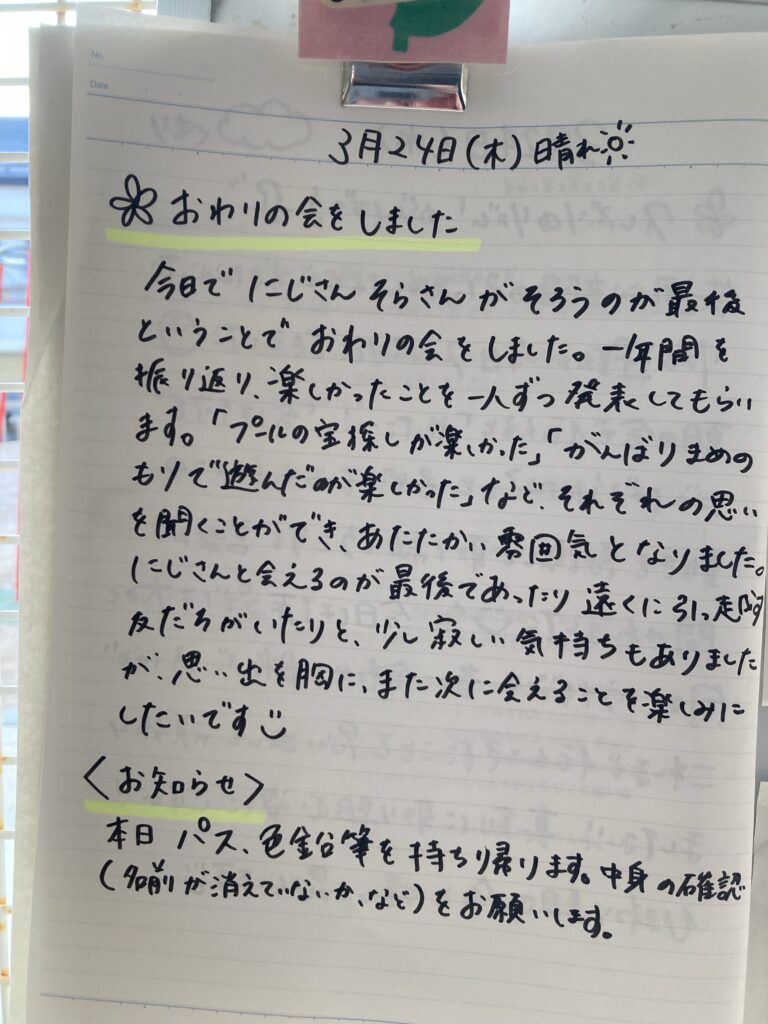 No.
Date
3月24日(木)晴れ
おわりの会をしました
今日で にじさん そらさん がそろうのが最後
ということで おわりの会をしました。一年間を
振り返り、楽しかったことを一人ずつ発表してもらい
ます。「プールの宝探しが楽しかった」「がんばりまめの
もりで遊んだのが楽しかった」など、それぞれの思い
を聞くことができ、あたたかい雰囲気となりました。
にじさんと会えるのが最後であったり 遠くに引っ越す
友だちがいたりと、少し寂しい気持ちもありました
が、思い出を胸に、また次に会えることを楽しみに
したいです
〈お知らせ〉
本日 パス、色鉛筆を持ち帰ります。中身の確認
(名前が消えていないか、など)をお願いします。